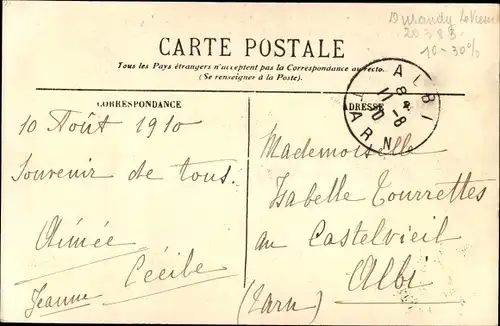 Durandy
20385
10-30%
CARTE POSTALE
Tous les Pays étrangers n'acceptent pas la Correspondance au recto.
(Se renseigner à la Poste).
ALBI
TARN
CORRESPONDANCE
ADRESSE
10 Août 1910
Souvenir de tous.
Aimée
Cécile
Jeanne
Mademoiselle
Isabelle Tourrettes
au Castelvieil
Albi
(Tarn)